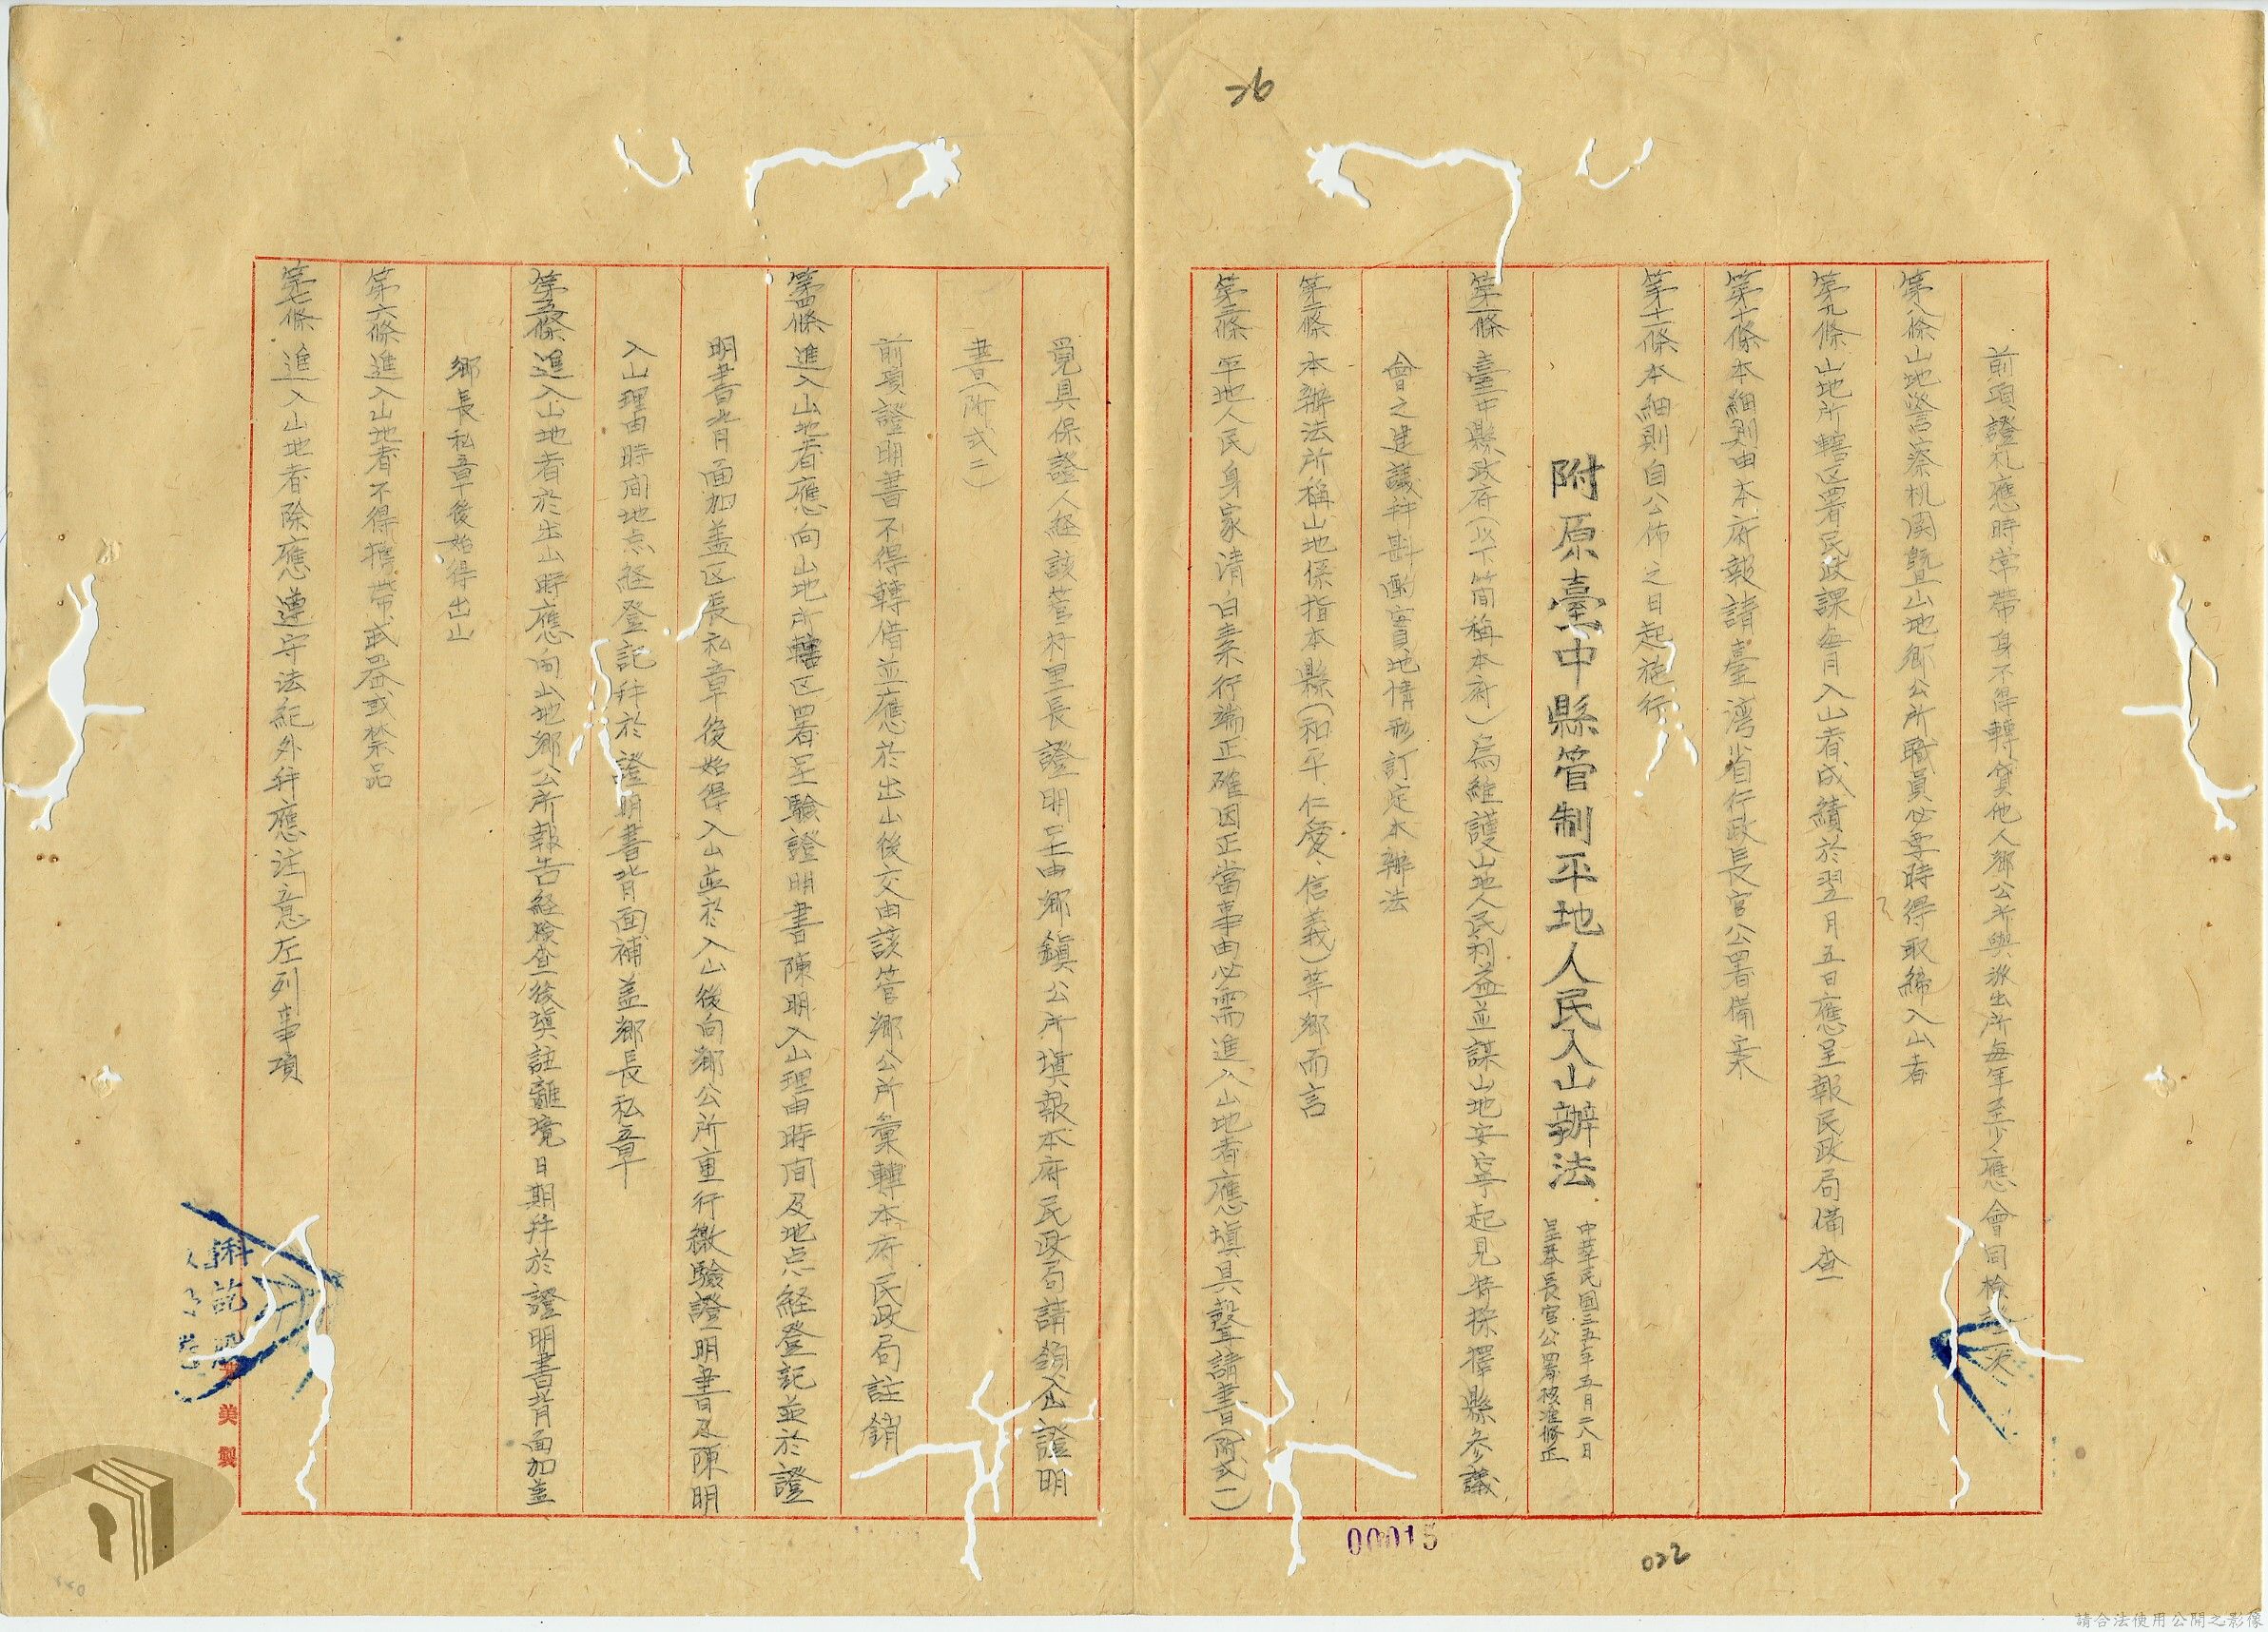 26
前項證札應時常帶身不得轉貸他人鄉公所與派出所每年至少應會同檢一次
第八條山地警察机関暨山地鄉公所職員必要時得取締入山者
第九條山地所轄区署民政課每月入山者成績於翌月五日應呈報民政局備查
第十條本細則由本府報請臺湾省行政長官公署備案
第十一條本細則自公佈之日起施行
附原臺中縣管制平地人民入山辦法
中華民国三五年五月二八日
呈奉長官公署核准修正
第一條臺中縣政府(以下简稱本府)為維護山地人民利益並謀山地安寧起見特採擇縣参議
會之建議并斟酌實地情形訂定本辦法
第二條本辦法所稱山地係指本縣(和平、仁愛、信義)等鄉而言
第三條平地人民身家清白素行端正確因正當事由必需進入山地者應填具聲請書(附式一)
覓具保證人経該管村里長證明呈由鄉鎮公所填報本府民政局請領入山證明
書(附式二)
前項證明書不得轉借並應於出山後交由該管鄉公所彙轉本府民政局註銷
第四條進入山地者應向山地所轄区署呈驗證明書陳明入山理由時间及地点経登記並於證
明書背面加盖区長私章後始得入山並於入山後向鄉公所重行繳驗證明書及陳明
入山理由時间地点経登記并於證明書背面補盖鄉長私章
第五條進入山地者於出山時應向山地鄉公所報告経檢查後填註離境日期并於證明書背面加盖
鄉長私章後始得出山
第六條進入山地者不得携帶武器或禁品
第七條進入山地者除應遵守法紀外并應注意左列事項
美製
00015
022
請合法使用公開之影像